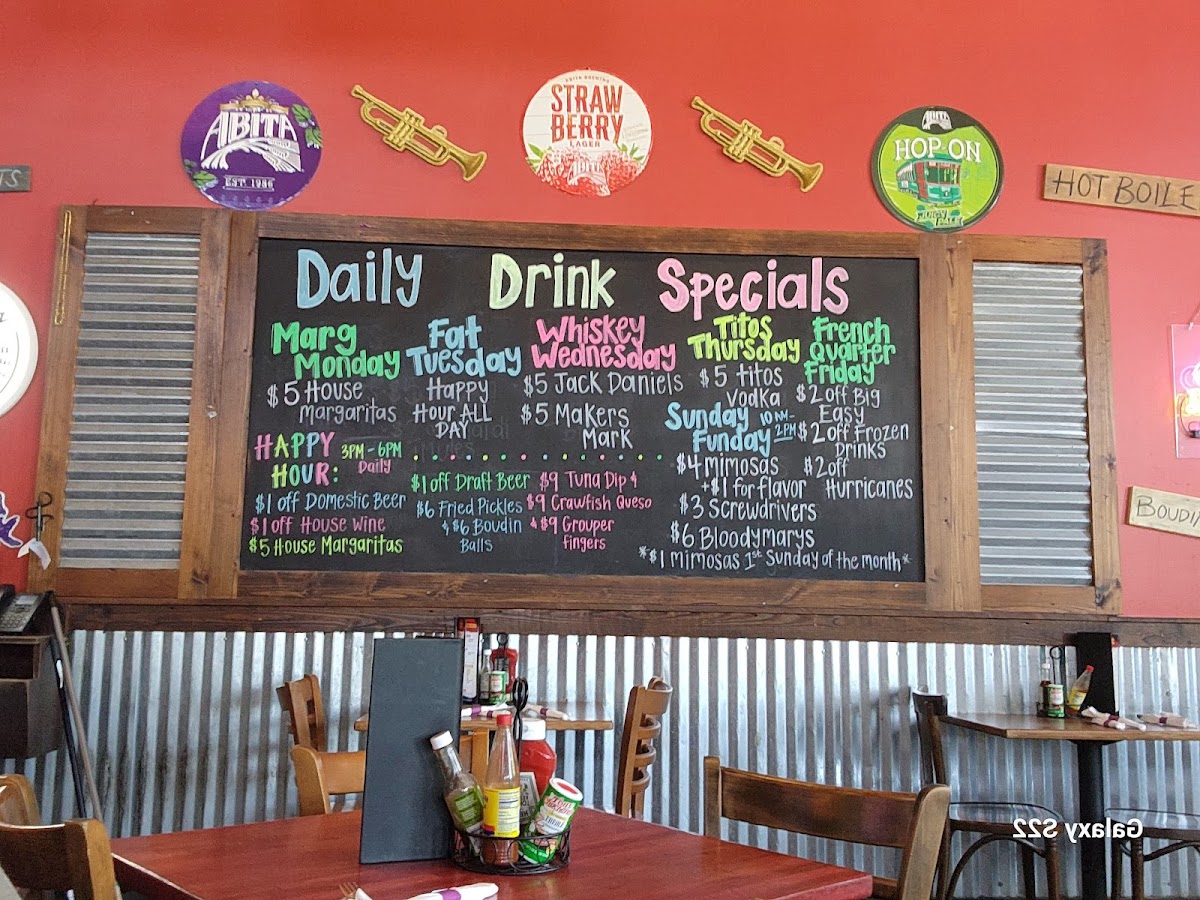 ABITA
EST. 1986
ABITA BREWING
STRAW
BERRY
LAGER
ABITA
ABITA
HOP-ON
JUICY PALE
TS
HOT BOILE
BOUDI
Daily Drink Specials
Marg
Monday
$5 House
margaritas
Fat
Tuesday
Happy
Hour ALL
DAY
Whiskey
Wednesday
$5 Jack Daniels
$5 Makers
Mark
Titos
Thursday
$5 titos
Vodka
French
Quarter
Friday
$2 off Big
Easy
$2 off Frozen
Drinks
$2 off
Hurricanes
Sunday 10AM-
Funday 2PM
$4 mimosas
+$1 for flavor
$3 Screwdrivers
$6 Bloodymarys
*$1 Mimosas 1st Sunday of the month*
HAPPY 3PM-6PM
HOUR: Daily
$1 off Domestic Beer
$1 off House Wine
$5 House Margaritas
$1 off Draft Beer
$6 Fried Pickles
& $6 Boudin
Balls
$9 Tuna Dip &
$9 Crawfish Queso
& $9 Grouper
fingers
Galaxy S22